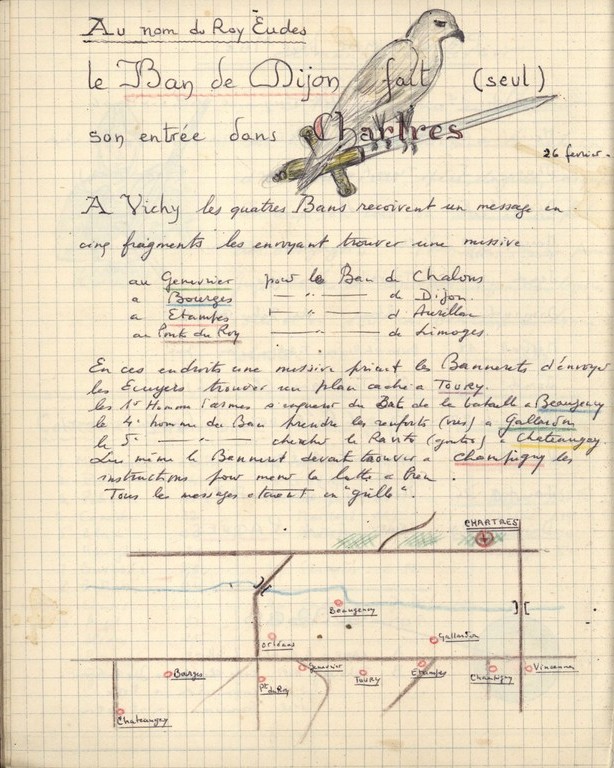 Au nom du Roy Eudes
le Ban de Dijon fait (seul)
son entrée dans Chartres
26 fevrier.
A Vichy les quatres Bans recoivent un message en
cinq fragments les envoyant trouver une missive
au Genevrier pour le Ban de Chalons
a Bourges — " — d Dijon.
a Etampes — " — d'Aurillac
au Pont du Roy — " — de Limoges.
En ces endroits une missive priant les Bannerets d'envoyer
les Ecuyers trouver un plan caché a Toury.
les 1er Homme d'armes s'enquerir du But de la bataille a Beaugency
le 4e homme du Ban prendre les renforts (vres) a Gallardon
le 5e — " — chercher le (gouter) a Chateaugay.
Lui même le Banneret devant trouver a Champigny les
instructions pour mener la lutte a bien.
Tous les messages etaient en "grille".
CHARTRES
Beaugency
Orléans
Gallardon
Bourges
Genevrier
Pt du Roy
Toury
Etampes
Champigny
Vincennes
Chateaugay